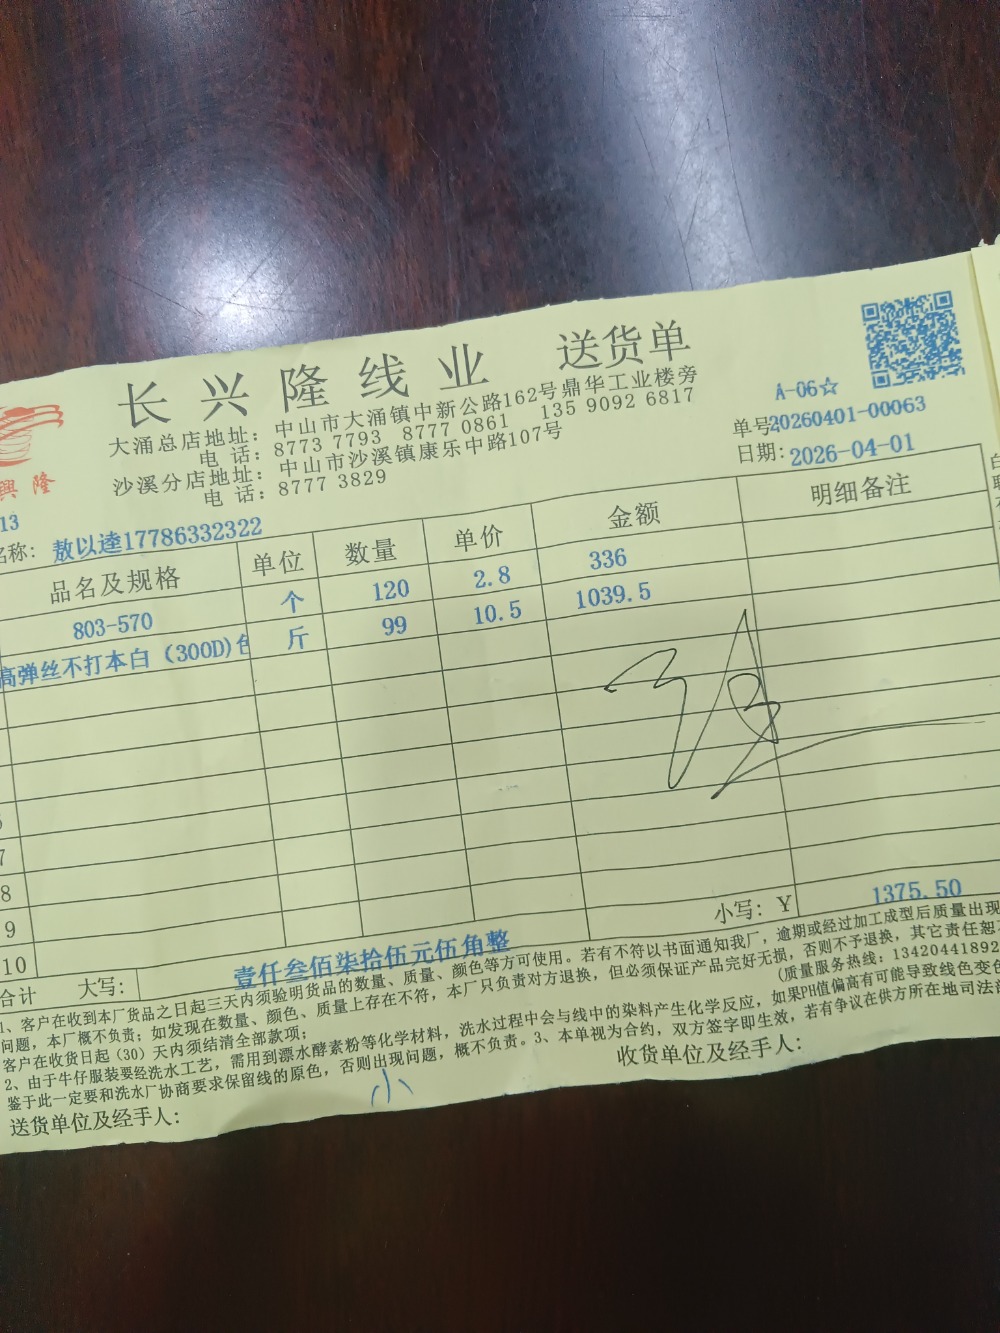 长兴隆线业 送货单
大涌总店地址：中山市大涌镇中新公路162号鼎华工业楼旁
电 话：8773 7793 8777 0861 135 9092 6817
沙溪分店地址：中山市沙溪镇康乐中路107号
电 话：8777 3829
A-06☆
单号:20260401-00063
日期：2026-04-01
興隆
13
名称：敖以逵17786332322
品名及规格 单位 数量 单价 金额 明细备注
803-570 个 120 2.8 336
高弹丝不打本白（300D)色 斤 99 10.5 1039.5
7
8
9
10
小写：Y 1375.50
合计 大写：壹仟叁佰柒拾伍元伍角整
1、客户在收到本厂货品之日起三天内须验明货品的数量、质量、颜色等方可使用。若有不符以书面通知我厂，逾期或经过加工成型后质量出现
问题，本厂概不负责；如发现在数量、颜色、质量上存在不符，本厂只负责对方退换，但必须保证产品完好无损，否则不予退换，其它责任恕不
客户在收货日起（30）天内须结清全部款项；（质量服务热线：13420441892
2、由于牛仔服装要经洗水工艺，需用到漂水酵素粉等化学材料，洗水过程中会与线中的染料产生化学反应，如果PH值偏高有可能导致线色变色
鉴于此一定要和洗水厂协商要求保留线的原色，否则出现问题，概不负责。3、本单视为合约，双方签字即生效，若有争议在供方所在地司法
送货单位及经手人：
收货单位及经手人：